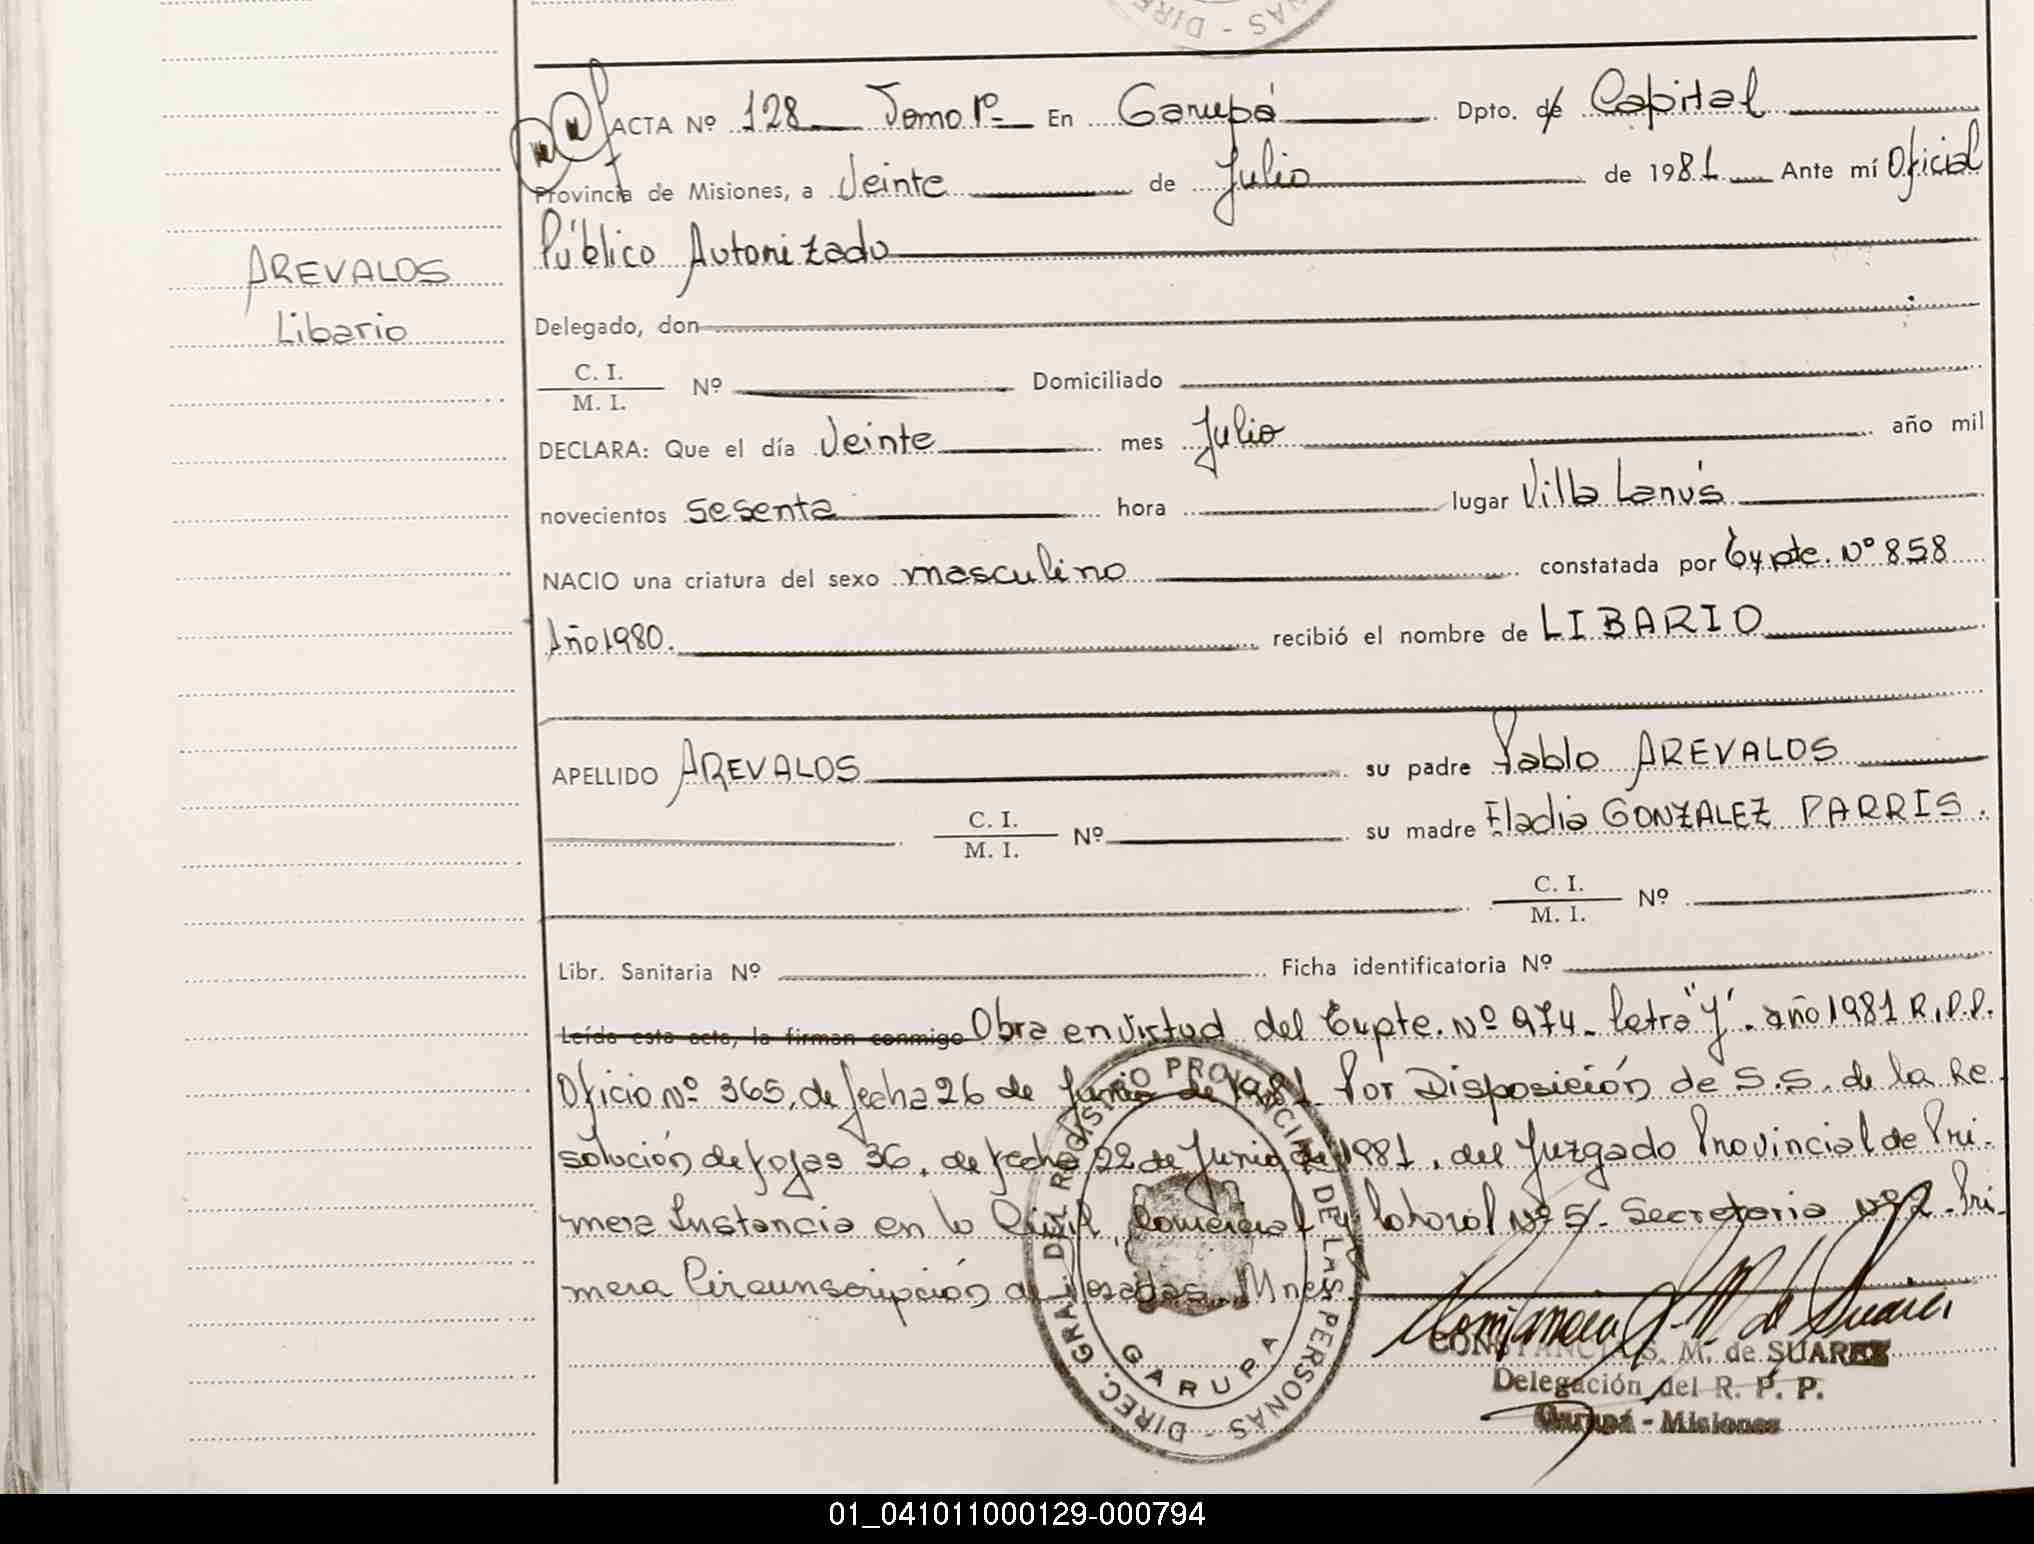 NAS - DIRE
ACTA Nº 128 Tomo 1º En Garupá Dpto. de Capital
Provincia de Misiones, a Veinte de Julio de 1981 Ante mí Oficial
Público Autorizado
AREVALOS
Libario
Delegado, don
C. I.
M. I. Nº Domiciliado
DECLARA: Que el día Veinte mes Julio año mil
novecientos sesenta hora lugar Villa Lanús
NACIO una criatura del sexo masculino constatada por Expte. Nº 858
Año 1980. recibió el nombre de LIBARIO
APELLIDO AREVALOS su padre Pablo AREVALOS
C. I.
M. I. Nº su madre Eladia GONZALEZ PARRIS.
C. I.
M. I. Nº
Libr. Sanitaria Nº Ficha identificatoria Nº
Leída esta acta, la firman conmigo Obra en virtud del Expte. Nº 974- letra "Y". año 1981 R.P.P.
Oficio Nº 365, de fecha 26 de Junio de 1981. Por Disposición de S.S. de la Re
solución de fojas 36, de fecha 22 de Junio de 1981, del Juzgado Provincial de Pri-
mera Instancia en lo Civil, Comercial y laboral Nº 5- Secretaria Nº 2- Pri-
mera Circunscripción de Posadas. Mnes.
DIREC. GRAL. DEL REGISTRO PROVINCIAL DE LAS PERSONAS -
GARUPA
CONSTANCIA S. M. de SUAREZ
Delegación del R. P. P.
Garupá - Misiones
01_041011000129-000794